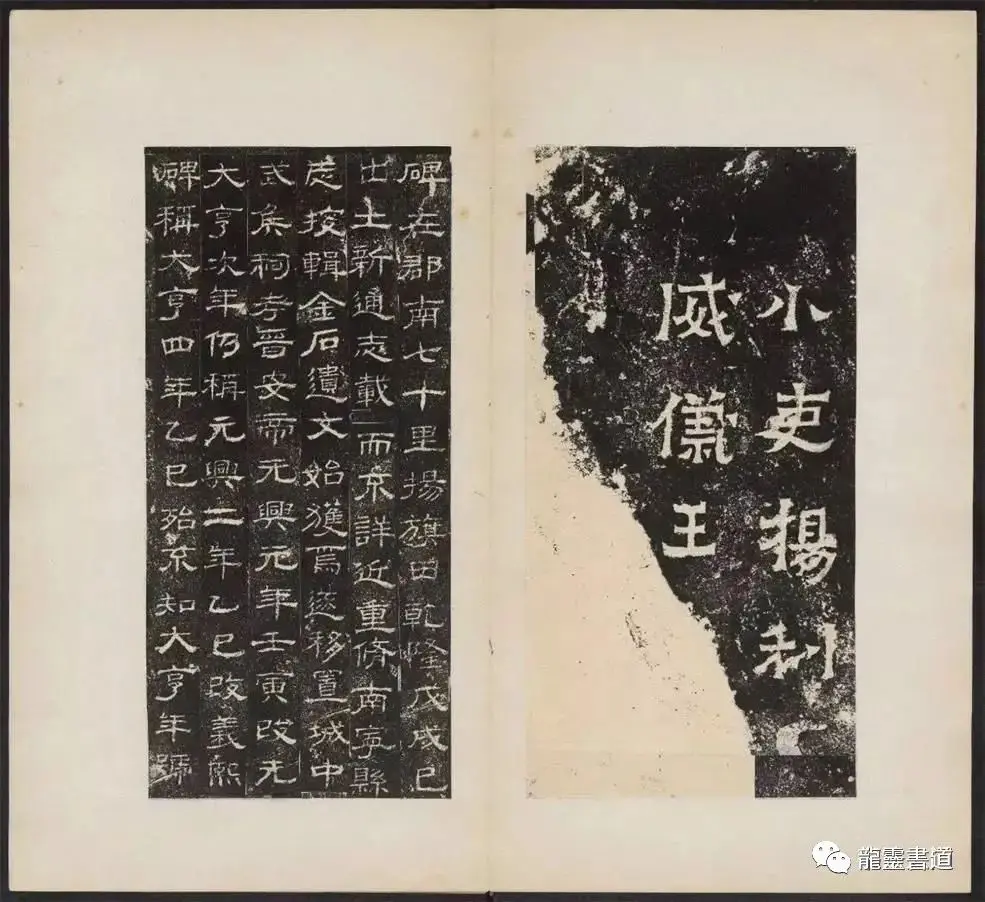 小吏揚利
威儀王
碑在郡南七十里揚旗田乾隆戊戌已
出土新通志載而未詳近重脩南寧縣
志搜輯金石遺文始獲焉遂移置城中
武矦祠考晉安帝元興元年壬寅改元
大亨次年仍稱元興二年乙巳改義熙
碑稱大亨四年乙巳殆未知大亨年號
龍靈書道